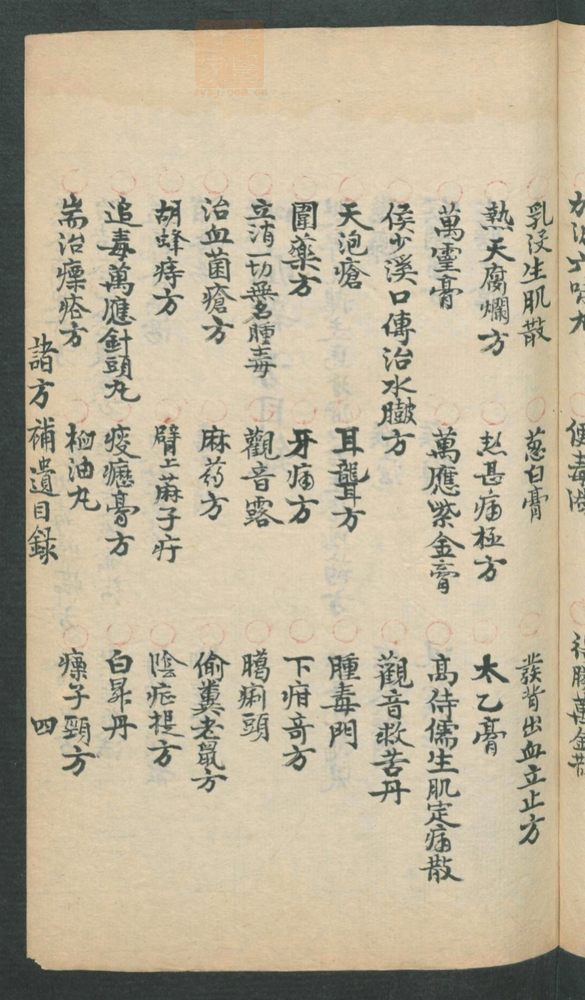 乳没生肌散 葱白膏 發背出血立止方
熱天腐爛方 熱甚痛極方 太乙膏
萬靈膏 萬應紫金膏 高侍儒生肌定痛散
侯少溪口傳治水臌方 觀音救苦丹
天泡瘡 耳聾方 腫毒門
圍藥方 牙痛方 下疳奇方
立消一切無名腫毒 觀音露 臈痢頭
治血菌瘡方 麻药方 偷糞老鼠方
胡蜂痔方 臂上蔴子疔 陰疟提方
追毒萬應針頭丸 痠瘋膏方 白昇丹
耑治瘰疬方 桕油丸 瘰子頸方
諸方補遺目録 四